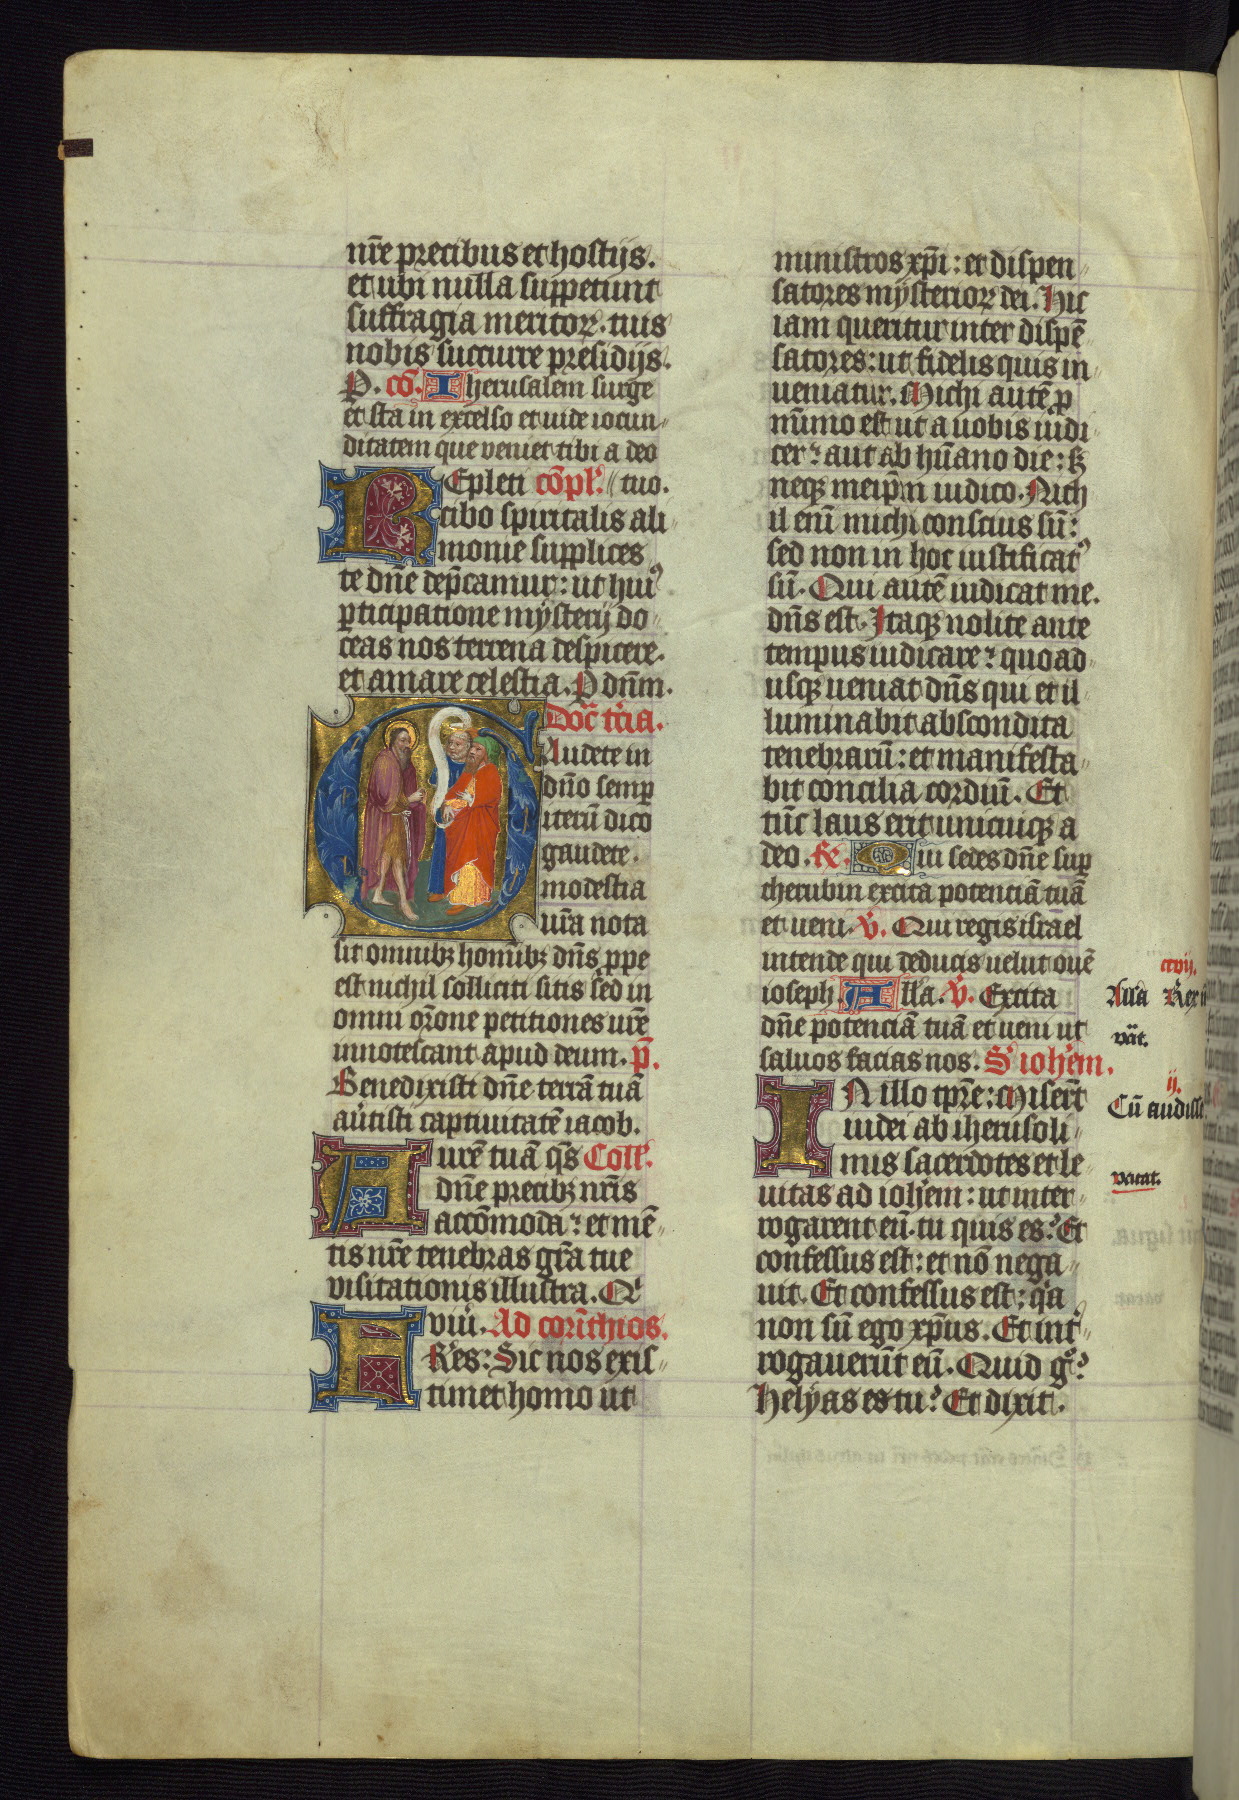 nr̄e precibus et hostijs.
et ubi nulla suppetunt
suffragia meritoꝝ. tuis
nobis succurre presidijs.
P. cō. Iherusalem surge
et sta in excelso et uide iocun
ditatem que veniet tibi a deo
REpleti cōpl'. tuo.
cibo spiritalis ali
monie supplices
te dn̄e dep̄camur: ut hui9
ꝑticipatione mysterij do
ceas nos terrena despicere.
et amare celestia. P dn̄m.
Doc̄ tr̄cia.
Gaudete in
dn̄o semꝑ
iterū dico
gaudete.
modestia
ur̄a nota
sit omnibꝫ hominibꝫ dn̄s ꝓpe
est nichil solliciti sitis sed in
omni or̄one petitiones ur̄e
innotescant apud deum. p̄.
Benedixisti dn̄e terrā tuā
au'tisti captiuitatē iacob.
Aurē tuā q̄s Coll'.
dn̄e precibꝫ nr̄is
accōmoda: et mē
tis nr̄e tenebras gr̄a tue
visitationis illustra. Q'
viui'. Ad corint̄hios.
FRēs: Sic nos exis
timet homo ut
ministros xp̄i: et dispen
satores mysterioꝝ dei. Hic
iam queritur inter dispē
satores: ut fidelis quis in
ueniatur. Michi autē ꝓ
minimo est ut a uobis iudi
cer: aut ab hūano die: sꝫ
neqꝫ meip̄m iudico. Nich
il enī michi conscius sū:
sed non in hoc iustificat9
sū. Qui autē iudicat me.
dn̄s est. Itaqꝫ nolite ante
tempus iudicare: quo ad
usqꝫ ueniat dn̄s qui et il
luminabit abscondita
tenebrarū: et manifesta
bit concilia cordiū. Et
tūc laus erit unicuiqꝫ a
deo. R̄. Qui sedes dn̄e suꝑ
cherubin excita potenciā tuā
et ueni. V̄. Qui regis israel
intende qui deducis uelut ouē
ioseph. All'a. V̄. Excita
dn̄e potenciā tuā et ueni ut
saluos facias nos. S' ioh'em.
IN illo tp̄re: Miser̄t
iudei ab iherusoli
mis sacerdotes et le
uitas ad ioh'em: ut inter
rogarent eū. tu quis es? Et
confessus est: et nō nega
uit. Et confessus est: q'a
non sū ego xp̄us. Et int'
rogauerūt eū. Quid g°?
Helyas es tu? Et dixit.
ccvij.
All'a Rex
vāt.
ij.
Cū audiss
vacat.